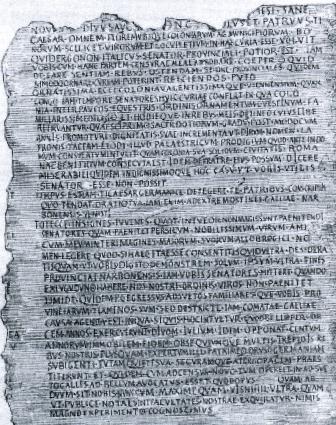 EST · SANE
NOVO · DIVVS · AVG · LVS · ET · PATRVVS · TI
CAESAR · OMNEM · FLOREM · VBIQVE · COLONIARVM · AC · MVNICIPIORVM · BO
NORVM · SCILICET · VIRORVM · ET · LOCVPLETIVM · IN · HAC · CVRIA · ESSE · VOLVIT
QVID · ERGO · NON · ITALICVS · SENATOR · PROVINCIALI · POTIOR · EST · IAM
VOBIS · CVM · HANC · PARTEM · CENSVRAE · MEAE · ADPROBARE · COEPERO · QVID
DE · EA · RE · SENTIAM · REBVS · OSTENDAM · SED · NE · PROVINCIALES · QVIDEM
SI · MODO · ORNARE · CVRIAM · POTERINT · REICIENDOS · PVTO
ORNATISSIMA · ECCE · COLONIA · VALENTISSIMAQVE · VIENNENSIVM · QVAM
LONGO · IAM · TEMPORE · SENATORES · HVIC · CVRIAE · CONFERT · EX · QVA · COLO
NIA · INTER · PAVCOS · EQVESTRIS · ORDINIS · ORNAMENTVM · L · VESTINVM · FA
MILIARISSIME · DILIGO · ET · HODIEQVE · IN · REBVS · MEIS · DETINEO · CVIVS · LIBE
RI · FRVANTVR · QVAESO · PRIMO · SACERDOTIORVM · GRADV · POST · MODO · CVM
ANNIS · PROMOTVRI · DIGNITATIS · SVAE · INCREMENTA · VT · DIRVM · NOMEN · LA
TRONIS · TACEAM · ET · ODI · ILLVD · PALAESTRICVM · PRODIGIVM · QVOD · ANTE · IN · DO
MVM · CONSVLATVM · INTVLIT · QVAM · COLONIA · SVA · SOLIDVM · CIVITATIS · ROMA
NAE · BENIFICIVM · CONSECVTA · EST · IDEM · DE · FRATRE · EIVS · POSSVM · DICERE
MISERABILI · QVIDEM · INDIGNISSIMOQVE · HOC · CASV · VT · VOBIS · VTILIS
SENATOR · ESSE · NON · POSSIT
TEMPVS · EST · IAM · TI · CAESAR · GERMANICE · DETEGERE · TE · PATRIBVS · CONSCRIPTIS
QVO · TENDAT · ORATIO · TVA · IAM · ENIM · AD · EXTREMOS · FINES · GALLIAE · NAR
BONENSIS · VENISTI
TOT · ECCE · INSIGNES · IVVENES · QVOT · INTVEOR · NON · MAGIS · SVNT · PAENITENDI
SENATORES · QVAM · PAENITET · PERSICVM · NOBILISSIMVM · VIRVM · AMI
CVM · MEVM · INTER · IMAGINES · MAIORVM · SVORVM · ALLOBROGICI · NO
MEN · LEGERE · QVOD · SI · HAEC · ITA · ESSE · CONSENTITIS · QVID · VLTRA · DESIDERA
TIS · QVAM · VT · VOBIS · DIGITO · DEMONSTREM · SOLVM · IPSVM · VLTRA · FINES
PROVINCIAE · NARBONENSIS · IAM · VOBIS · SENATORES · MITTERE · QVANDO
EX · LVGVDVNO · HABERE · NOS · NOSTRI · ORDINIS · VIROS · NON · PAENITET
TIMIDE · QVIDEM · P · C · EGRESSVS · ADSVETOS · FAMILIARESQVE · VOBIS · PRO
VINCIARVM · TERMINOS · SVM · SED · DESTRICTE · IAM · COMATAE · GALLIAE
CAVSA · AGENDA · EST · IN · QVA · SI · QVIS · HOC · INTVETVR · QVOD · BELLO · PER · DE
CEM · ANNOS · EXERCVERVNT · DIVOM · IVLIVM · IDEM · OPPONAT · CENTVM
ANNORVM · IMMOBILEM · FIDEM · OBSEQVIVMQVE · MVLTIS · TREPIDIS · RE
BVS · NOSTRIS · PLVSQVAM · EXPERTVM · ILLI · PATRI · MEO · DRVSO · GERMANIAM
SVBIGENTI · TVTAM · QVIETE · SVA · SECVRAMQVE · A · TERGO · PACEM · PRAES
TITERVNT · ET · QVIDEM · CVM · AD · CENSVS · NOVO · TVM · OPERE · ET · IN · ADSVE
TO · GALLIS · AD · BELLVM · AVOCATVS · ESSET · QVOD · OPVS · QVAM · AR
DVVM · SIT · NOBIS · NVNC · CVM · MAXIME · QVAMVIS · NIHIL · VLTRA · QVAM
VT · PVBLICE · NOTAE · SINT · FACVLTATES · NOSTRAE · EXQVIRATVR · NIMIS
MAGNO · EXPERIMENTO · COGNOSCIMVS